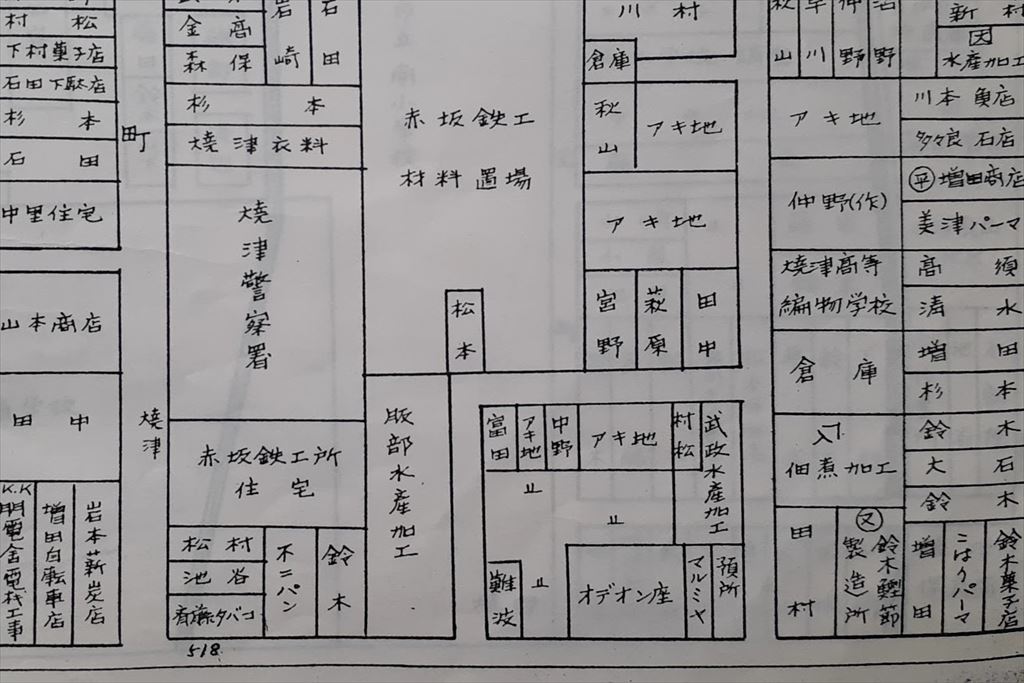 村松
下村菓子店
石田下駄店
杉本
石田
中里住宅
町
山本商店
田中
K.K
明電舎電機工事
増田自転車店
岩本薪炭店
焼津
金高
森保
岩崎
石田
杉本
焼津衣料
焼津警察署
赤坂鉄工所
住宅
松村
池谷
斉藤タバコ
不二パン
鈴木
518
赤坂鉄工
材料置場
松本
服部水産加工
川村
倉庫
秋山
アキ地
アキ地
宮野
萩原
田中
富田
アキ地
中野
アキ地
村松
武政水産加工
〃
〃
〃
難波
オデオン座
マルミヤ
預所
秋山
早川
仲野
沼野
新村
因
水産加工
アキ地
川本魚店
多々良石店
仲野(作)
平増田商店
美津パーマ
焼津高等
編物学校
高須
清水
倉庫
増田
杉本
佃煮加工
鈴木
大石
鈴木
田村
又
鈴木鰹節
製造所
増田
こはりパーマ
鈴木菓子店